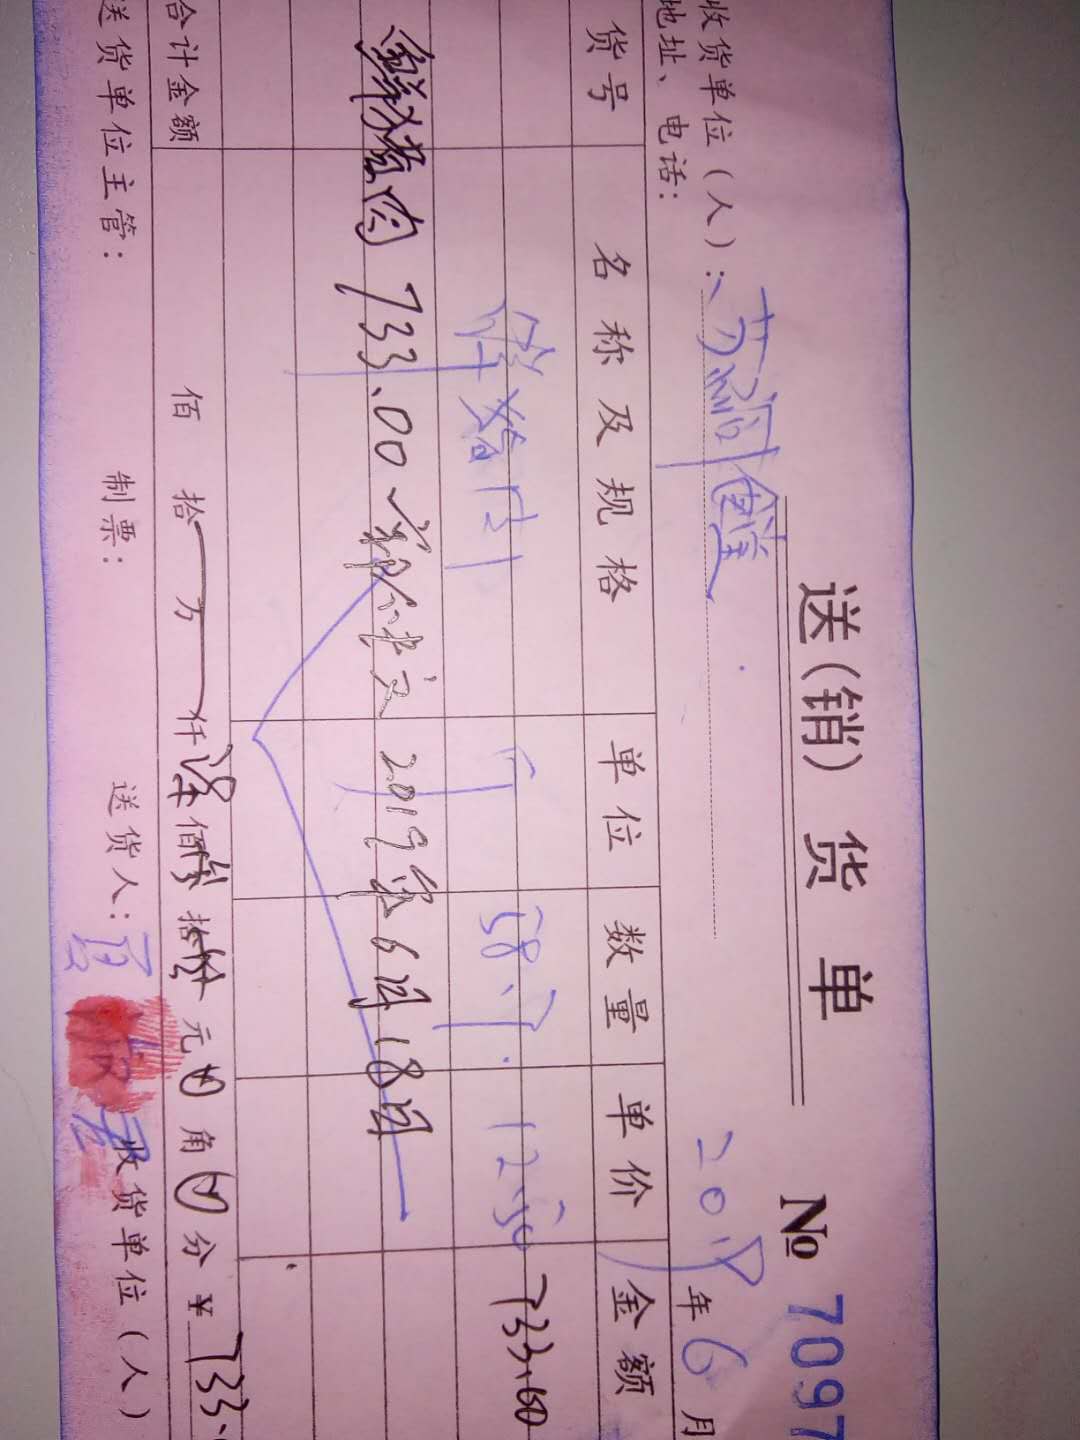 送(销)货单
№ 7097
收货单位(人):
2019年6月
地址、电话:
货号 名称及规格 单位 数量 单价 金额
鲜猪肉 斤 58.7 12.50 733.00
鲜猪肉 733.00 2019年6月18日
合计金额 佰 拾 万 仟 柒佰 叁拾 叁元 0角 0分 ¥ 733.
送货单位主管: 制票: 送货人: 收货单位(人)